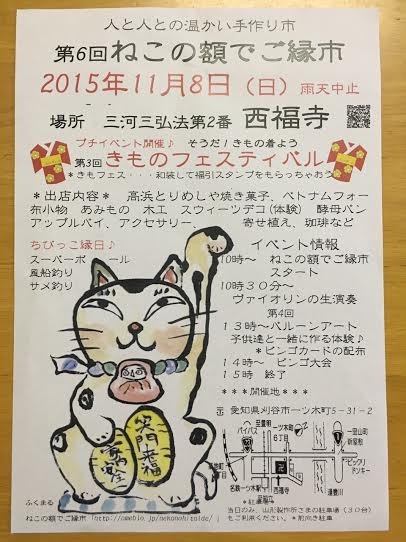 人と人との温かい手作り市
第6回ねこの額でご縁市
2015年11月8日（日）雨天中止
場所　三河三弘法第2番　西福寺
プチイベント開催♪　そうだ！きもの着よう
第3回きものフェスティバル
＊きものフェス・・・和装して福引スタンプをもらっちゃおう
＊出店内容＊　高浜とりめしや焼き菓子、ベトナムフォー
布小物　あみもの　木工　スウィーツデコ（体験）　酵母パン
アップルパイ、アクセサリー、　寄せ植え、珈琲など
ちびっこ縁日♪
スーパーボール
風船釣り
サメ釣り
イベント情報
10時～　ねこの額でご縁市
スタート
10時30分～
ヴァイオリンの生演奏
第4回
13時～バルーンアート
子供達と一緒に作る体験♪
＊ビンゴカードの配布
14時～　ビンゴ大会
15時　終了
＊＊＊開催地＊＊＊
愛知県刈谷市一ツ木町5－31－2
笑門来福
ふくまる
ねこの額でご縁市「http://ameblo.jp/nekonohitaide/」
至豊明
バイパス
一ツ木町
6丁目
一里山町
新屋敷
ビックリ
ドンキー
名鉄一ツ木駅
西福寺
逢妻川
当日のみ、山形製作所さまの駐車場（30台）
もご利用ください。＊前向き駐車